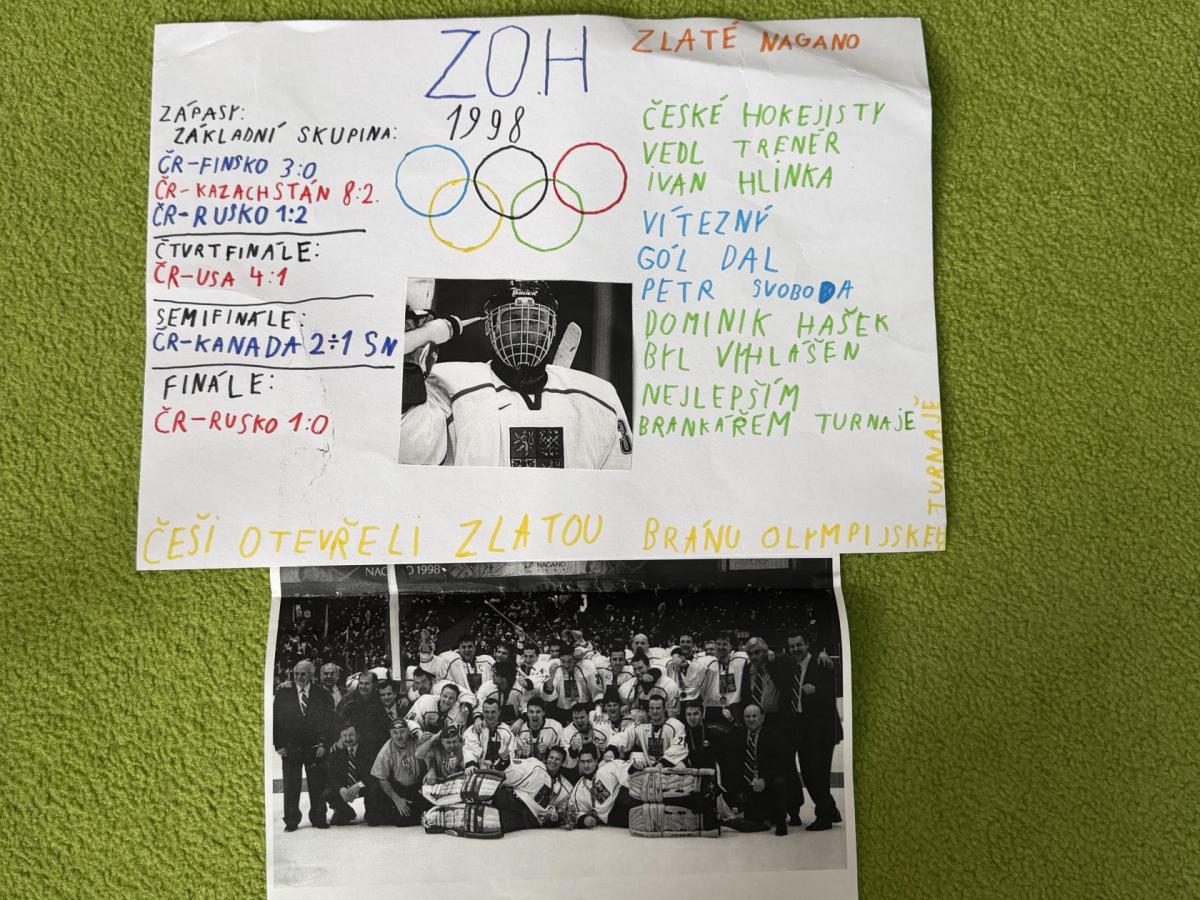 ZOH
1998
ZLATÉ NAGANO
ZÁPASY:
ZÁKLADNÍ SKUPINA:
ČR-FINSKO 3:0
ČR-KAZACHSTÁN 8:2.
ČR-RUSKO 1:2
ČTVRTFINÁLE:
ČR-USA 4:1
SEMIFINÁLE:
ČR-KANADA 2÷1 SN
FINÁLE:
ČR-RUSKO 1:0
BAUER
3
ČESKÉ HOKEJISTY
VEDL TRENÉR
IVAN HLINKA
VÍTEZNÝ
GÓL DAL
PETR SVOBODA
DOMINIK HAŠEK
BYL VYHLÁŠEN
NEJLEPŠÍM
BRANKÁŘEM TURNAJE
ČEŠI OTEVŘELI ZLATOU BRÁNU OLYMPIJSKÉ
TURNAJE
1998
NAGANO